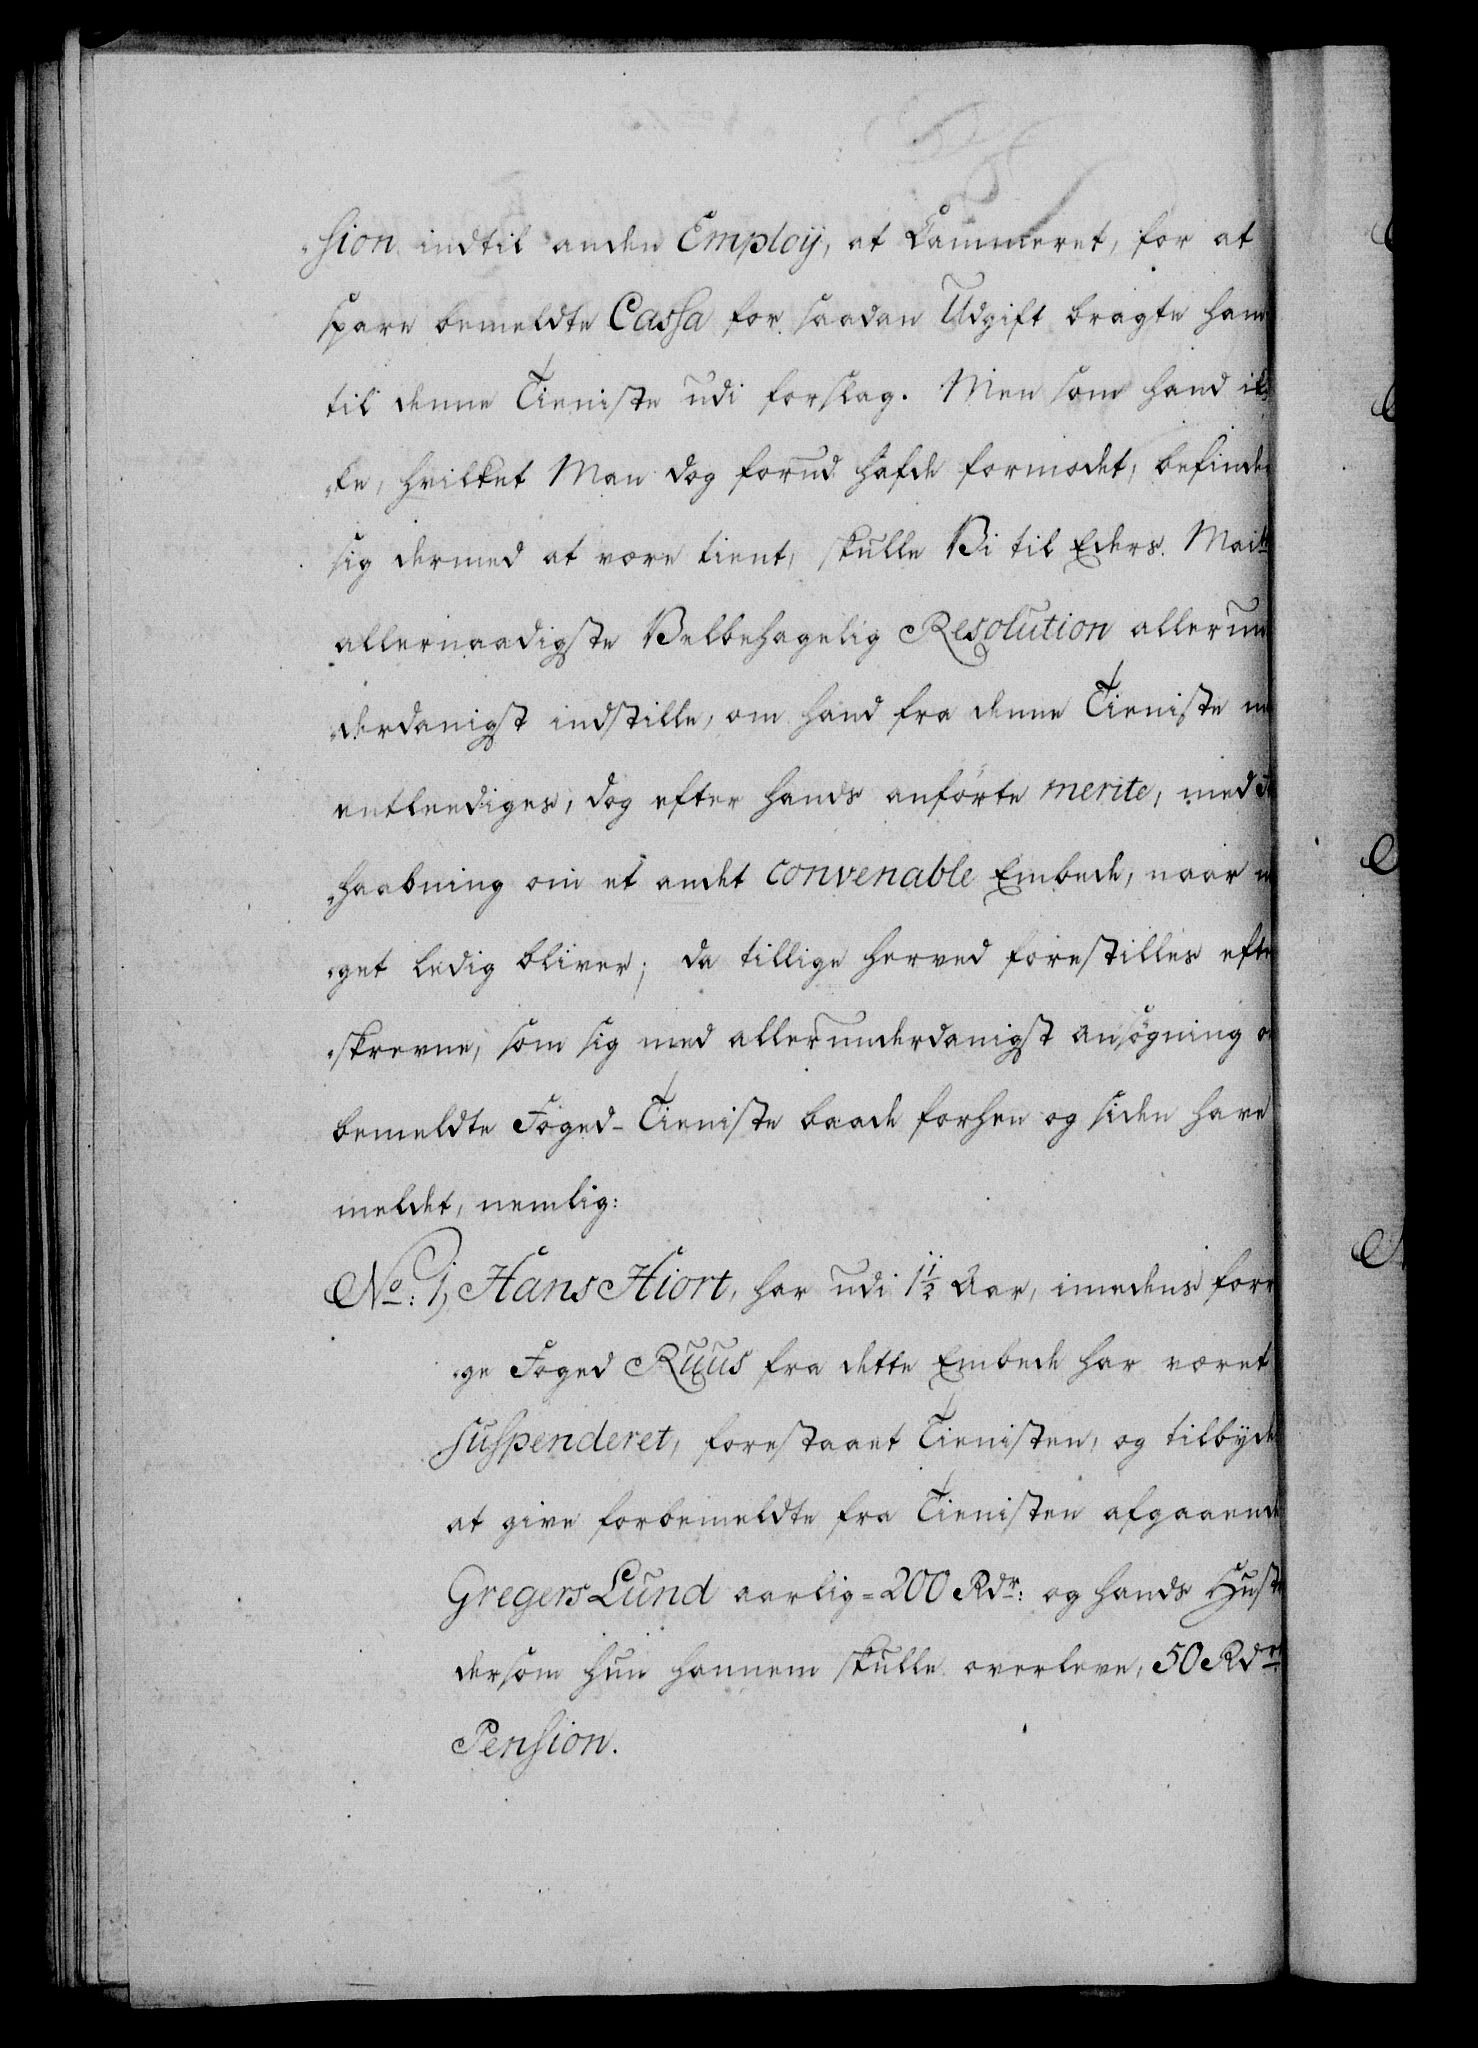 sion indtil anden Employ, at Cammeret, for at
spare bemeldte Cassa for saadan Udgift bragte ham
til denne Tieniste udi forslag. Men som hand ik
ke, hvilket Man dog forud hafde formodet, befinder
sig dermed at være tient, skulle Vi til Eders Maits
allernaadigste Velbehagelig Resolution allerun
derdanigst indstille, om hand fra denne Tieniste
entleediges, dog efter hands anførte merite, med
haabning om et andet convenable Embede, naar
get ledig bliver; da tillige herved forestilles efter
skrevne, som sig med allerunderdanigst ansøgning
bemeldte Foged-Tieniste baade forhen og siden have
meldet, nemlig:
No: 1, Hans Hiort, har udi 1½ Aar, imedens forri
ge Foged Ruus fra dette Embede har været
suspenderet, forestaaet Tienisten, og tilbyder
at give forbemeldte fra Tienisten afgaaende
Gregers Lund aarlig = 200 Rdr: og hands Hustr
dersom hun hannem skulle overleve, 50 Rdr
Pension.